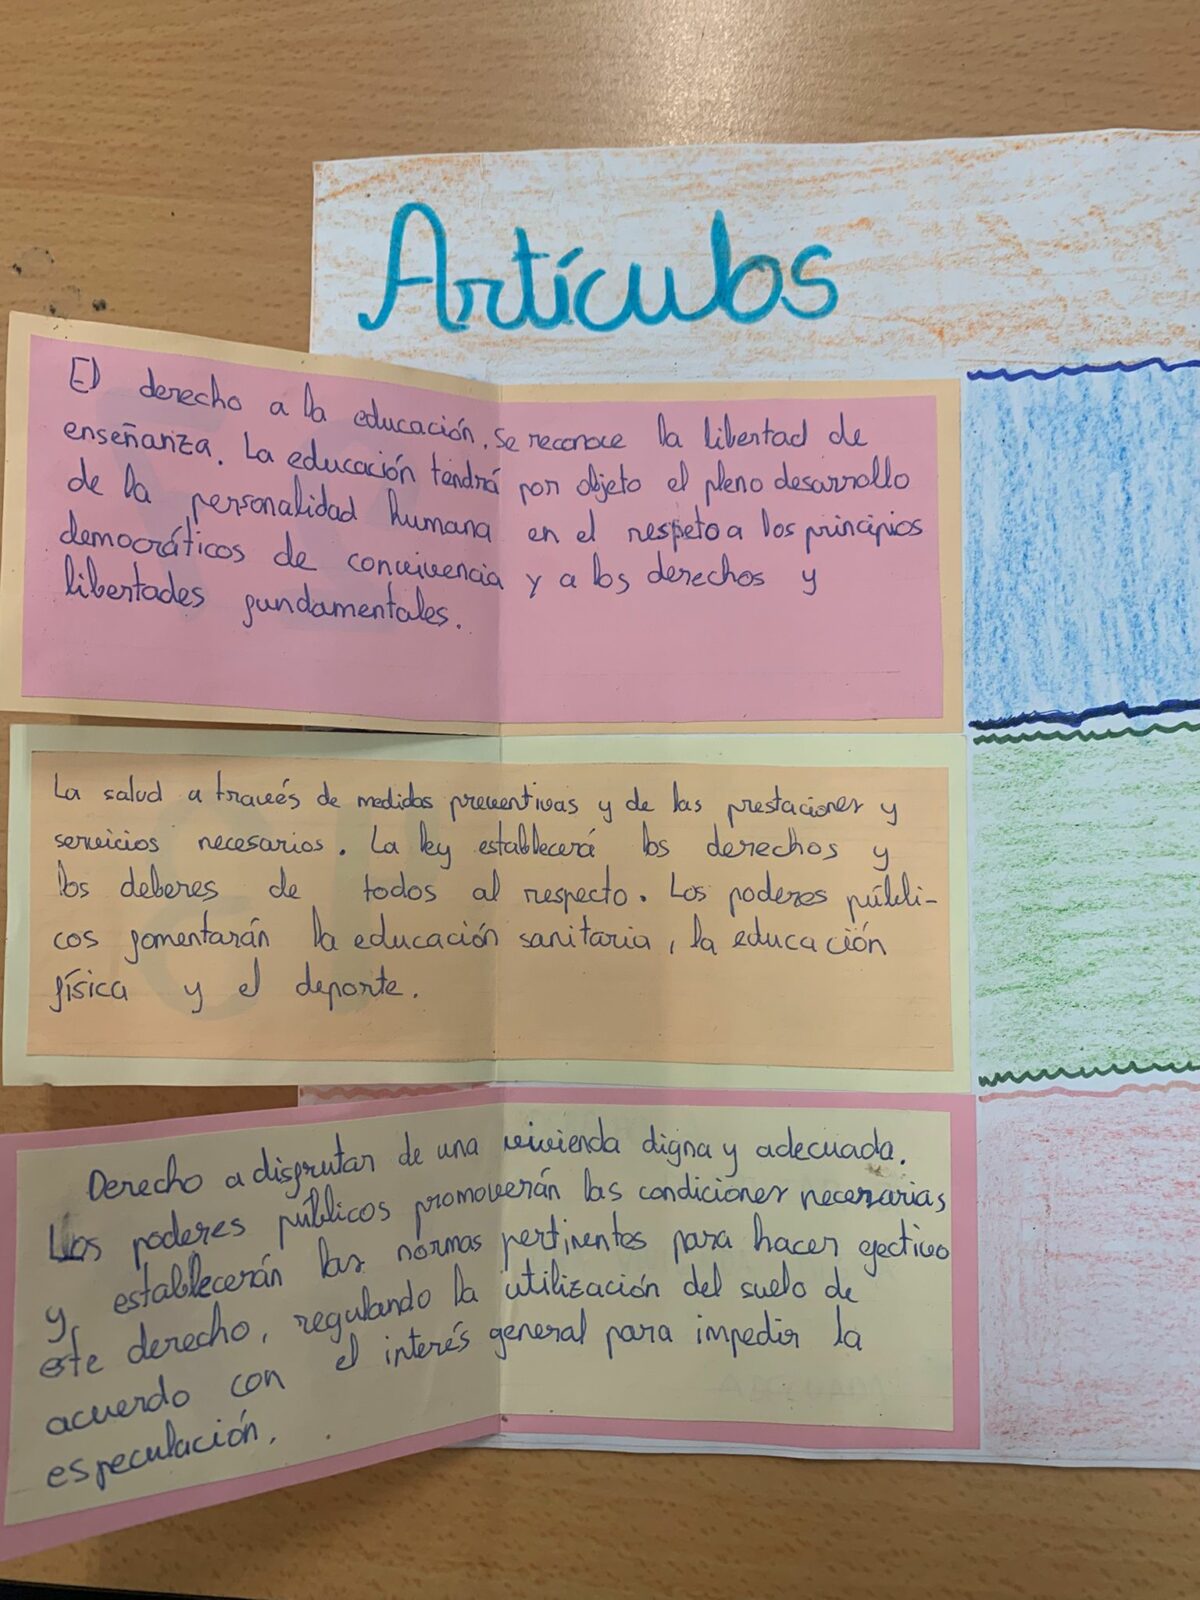 Artículos
El derecho a la educación. Se reconoce la libertad de
enseñanza. La educación tendrá por objeto el pleno desarrollo
de la personalidad humana en el respeto a los principios
democráticos de convivencia y a los derechos y
libertades fundamentales.
La salud a través de medidas preventivas y de las prestaciones y
servicios necesarios. La ley establecerá los derechos y
los deberes de todos al respecto. Los poderes públi-
cos fomentarán la educación sanitaria, la educación
física y el deporte.
Derecho a disfrutar de una vivienda digna y adecuada.
Los poderes públicos promoverán las condiciones necesarias
y establecerán las normas pertinentes para hacer efectivo
este derecho, regulando la utilización del suelo de
acuerdo con el interés general para impedir la
especulación.